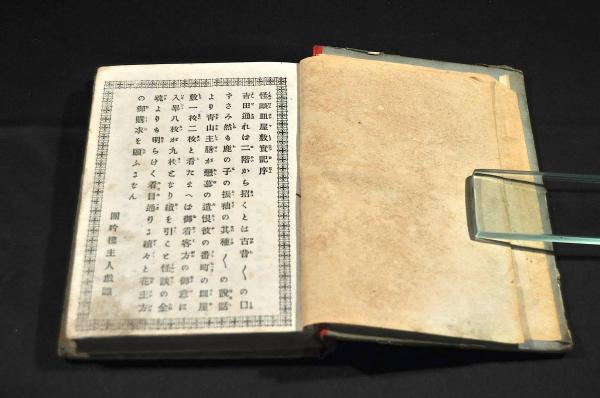 怪談皿屋敷實記序
吉田通れば二階から招くとは古昔〳〵の口
ずさみ然も鹿の子の振袖の其種〳〵の説話
より青山主膳が戀慕の遺恨彼の番町の皿屋
敷一枚二枚と看たまへば御看客方の御意に
入早八枚が九枚となり續を引くと怪談の全
魂よりも明らけく看目通りよ續々と花主方
の御購求を願ふになん
園吟樓主人戲識